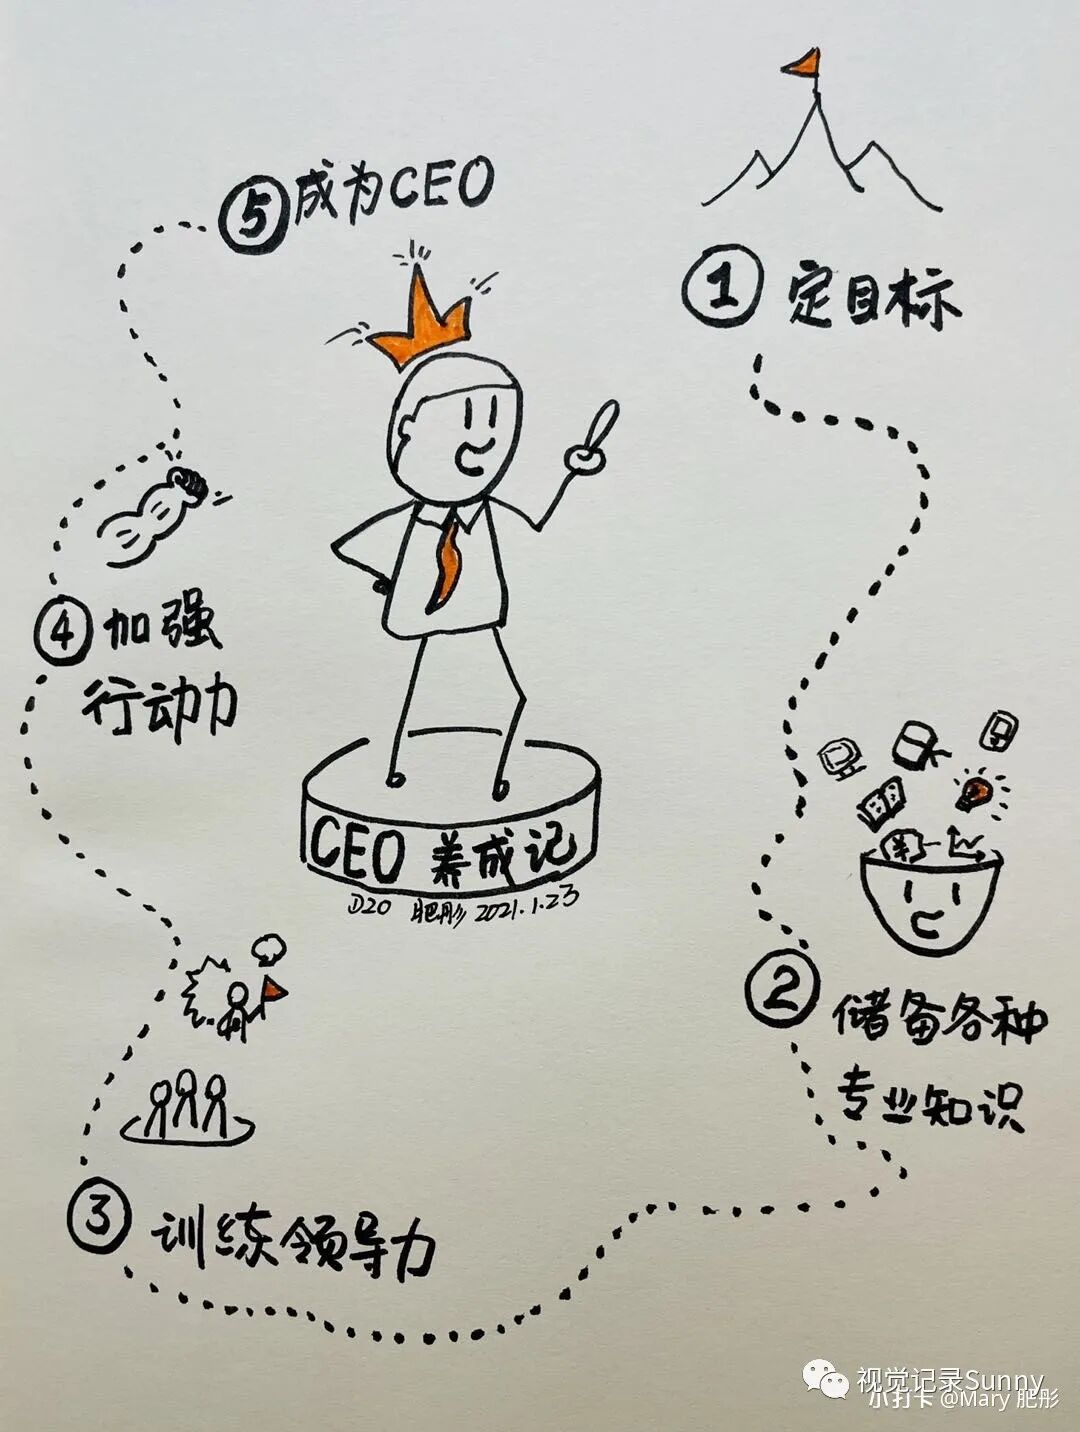 ⑤成为CEO
① 定目标
④加强
行动力
CEO 养成记
D20 肥彤 2021.1.23
② 储备各种
专业知识
③ 训练领导力
视觉记录Sunny
小打卡 @Mary 肥彤